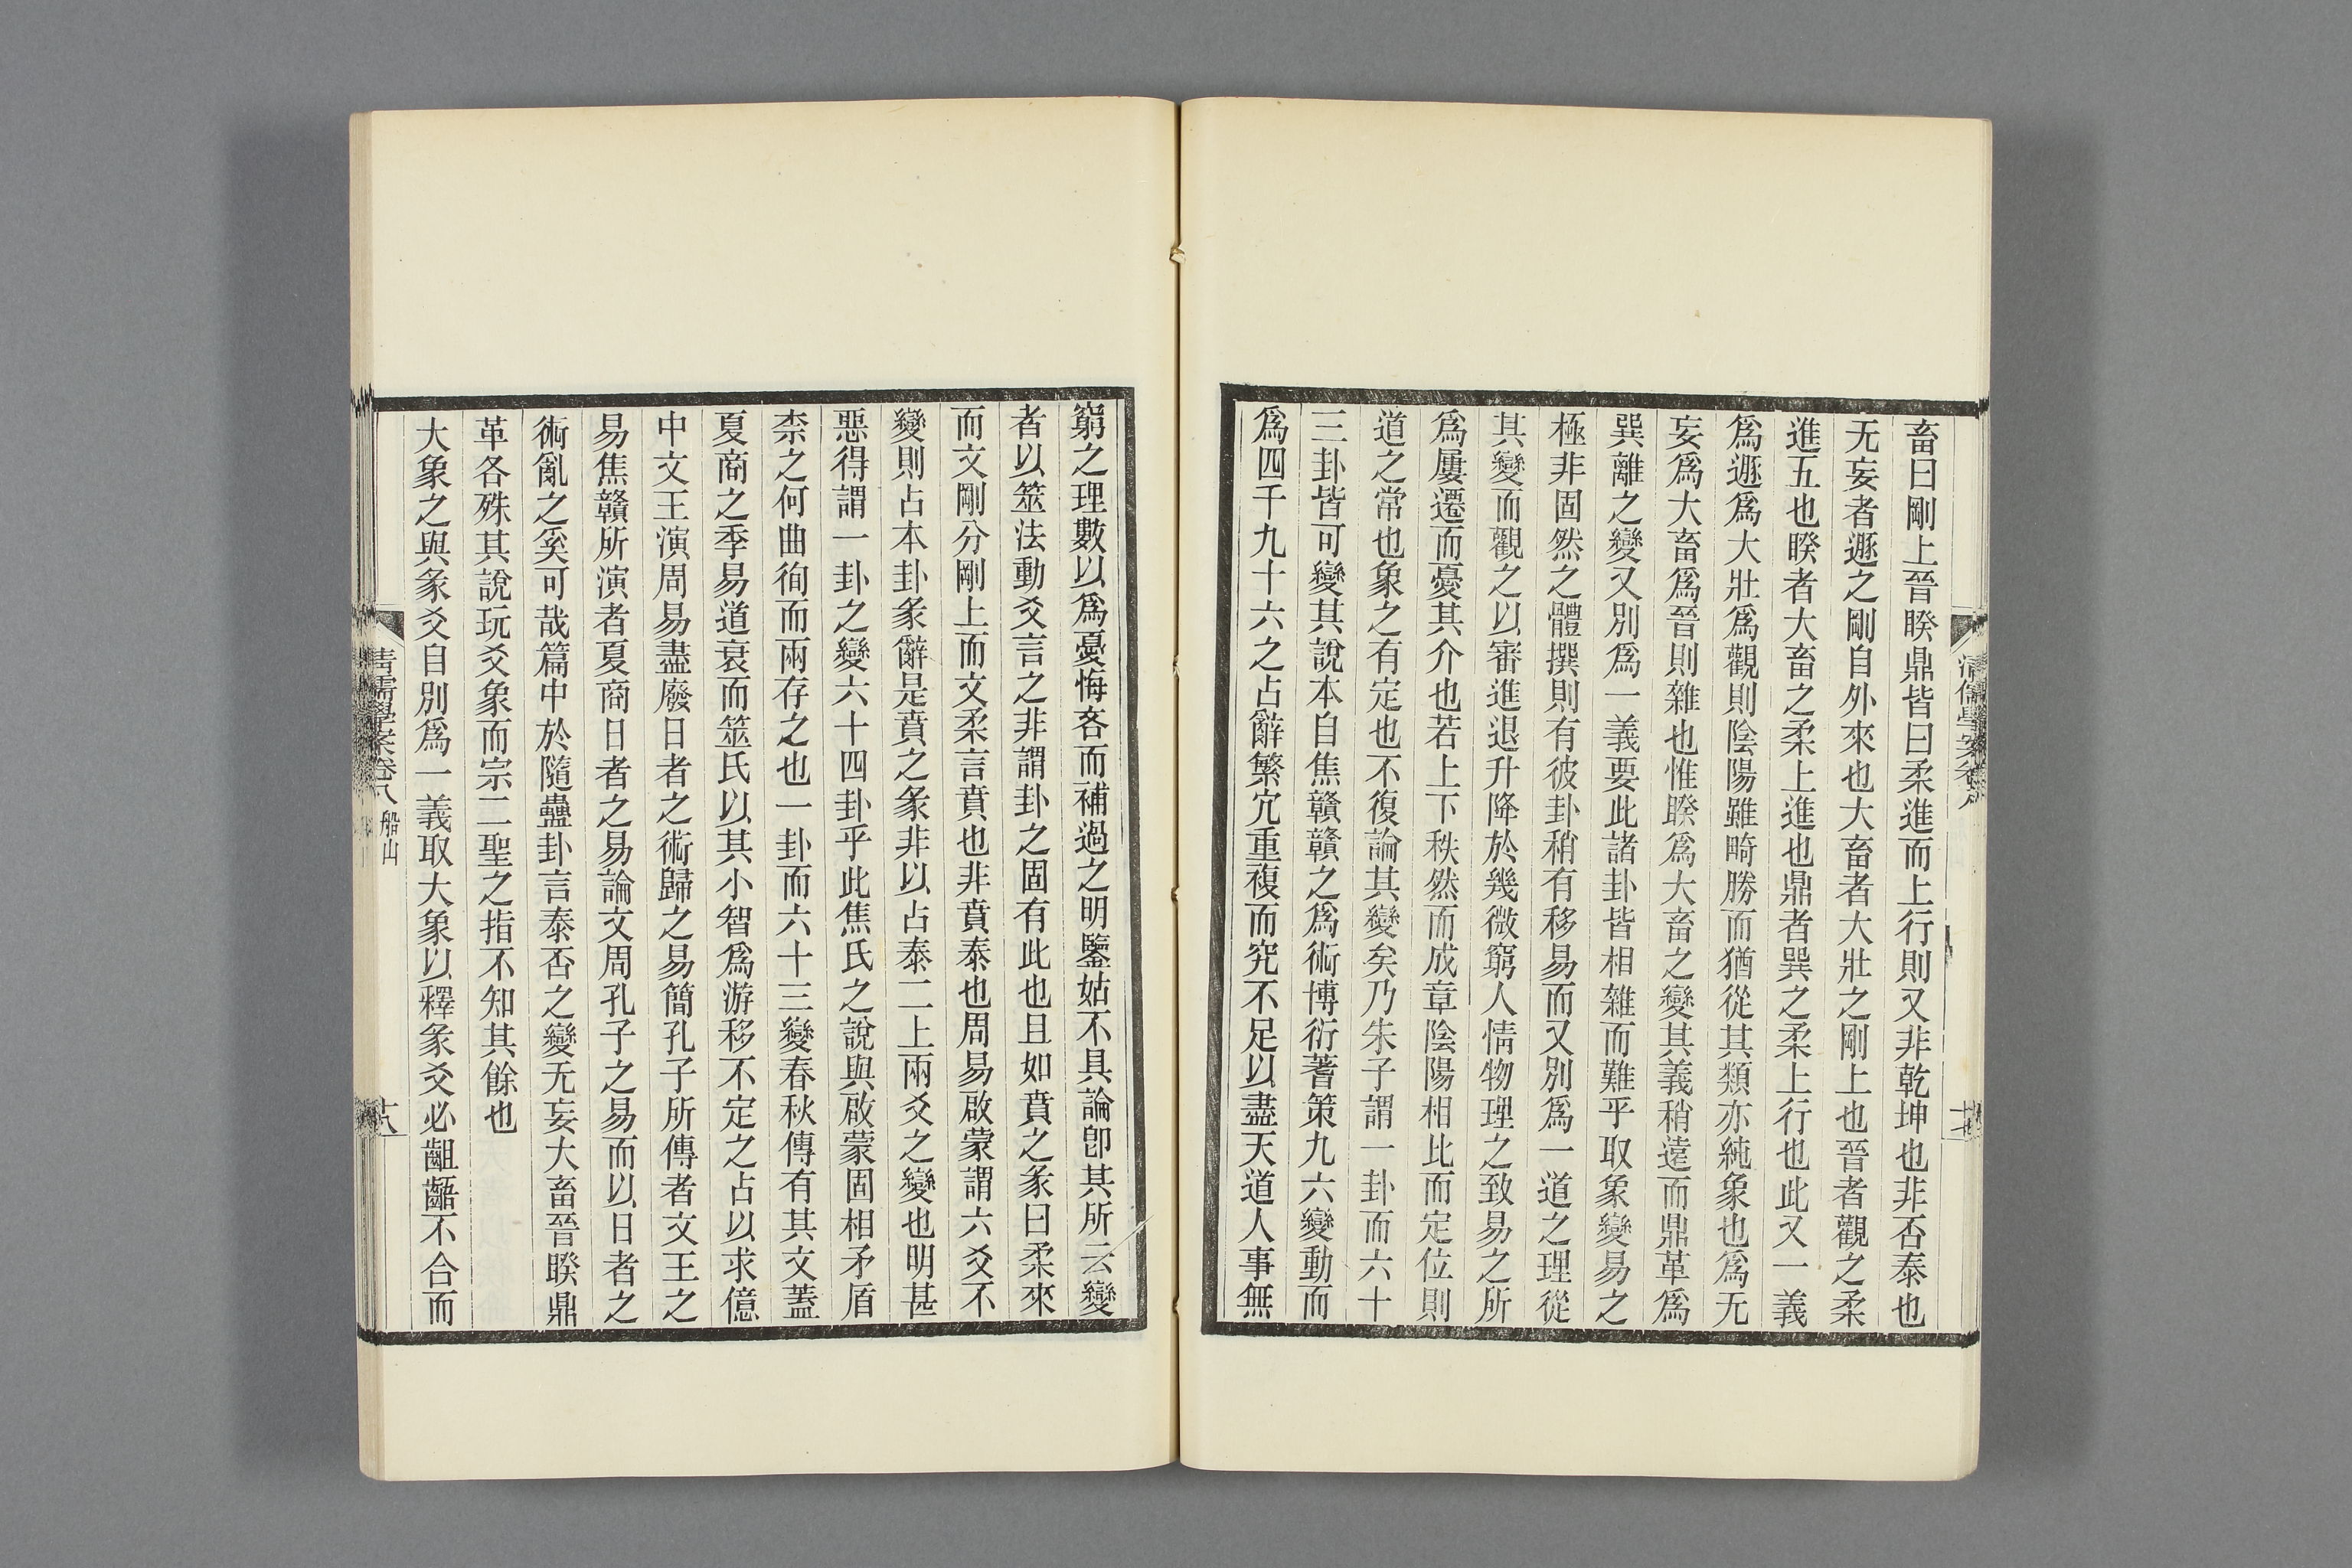 畜曰剛上晉睽鼎皆曰柔進而上行則又非乾坤也非否泰也
无妄者遯之剛自外來也大畜者大壯之剛上也晉者觀之柔
進五也睽者大畜之柔上進也鼎者巽之柔上行也此又一義
爲遯爲大壯爲觀則陰陽雖畸勝而猶從其類亦純象也爲无
妄爲大畜爲晉則雜也惟睽爲大畜之變其義稍遠而鼎革爲
巽離之變又別爲一義要此諸卦皆相雜而難乎取象變易之
極非固然之體撰則有彼卦稍有移易而又別爲一道之理從
其變而觀之以審進退升降於幾微窮人情物理之致易之所
爲屢遷而憂其介也若上下秩然而成章陰陽相比而定位則
道之常也象之有定也不復論其變矣乃朱子謂一卦而六十
三卦皆可變其說本自焦贛贛之爲術博衍蓍策九六變動而
爲四千九十六之占辭繁宂重複而究不足以盡天道人事無
窮之理數以爲憂悔吝而補過之明鑒姑不具論卽其所云變
者以筮法動爻言之非謂卦之固有此也且如賁之彖曰柔來
而文剛分剛上而文柔言賁也非賁泰也周易啟蒙謂六爻不
變則占本卦彖辭是賁之彖非以占泰二上兩爻之變也明甚
惡得謂一卦之變六十四卦乎此焦氏之說與啟蒙固相矛盾
柰之何曲徇而兩存之也一卦而六十三變春秋傳有其文蓋
夏商之季易道衰而筮氏以其小智爲游移不定之占以求億
中文王演周易盡廢日者之術歸之易簡孔子所傳者文王之
易焦贛所演者夏商日者之易論文周孔子之易而以日者之
術亂之奚可哉篇中於隨蠱卦言泰否之變无妄大畜晉睽鼎
革各殊其說玩爻象而宗二聖之指不知其餘也
大象之與彖爻自別爲一義取大象以釋彖爻必齟齬不合而
清儒學案卷八 船山
十八